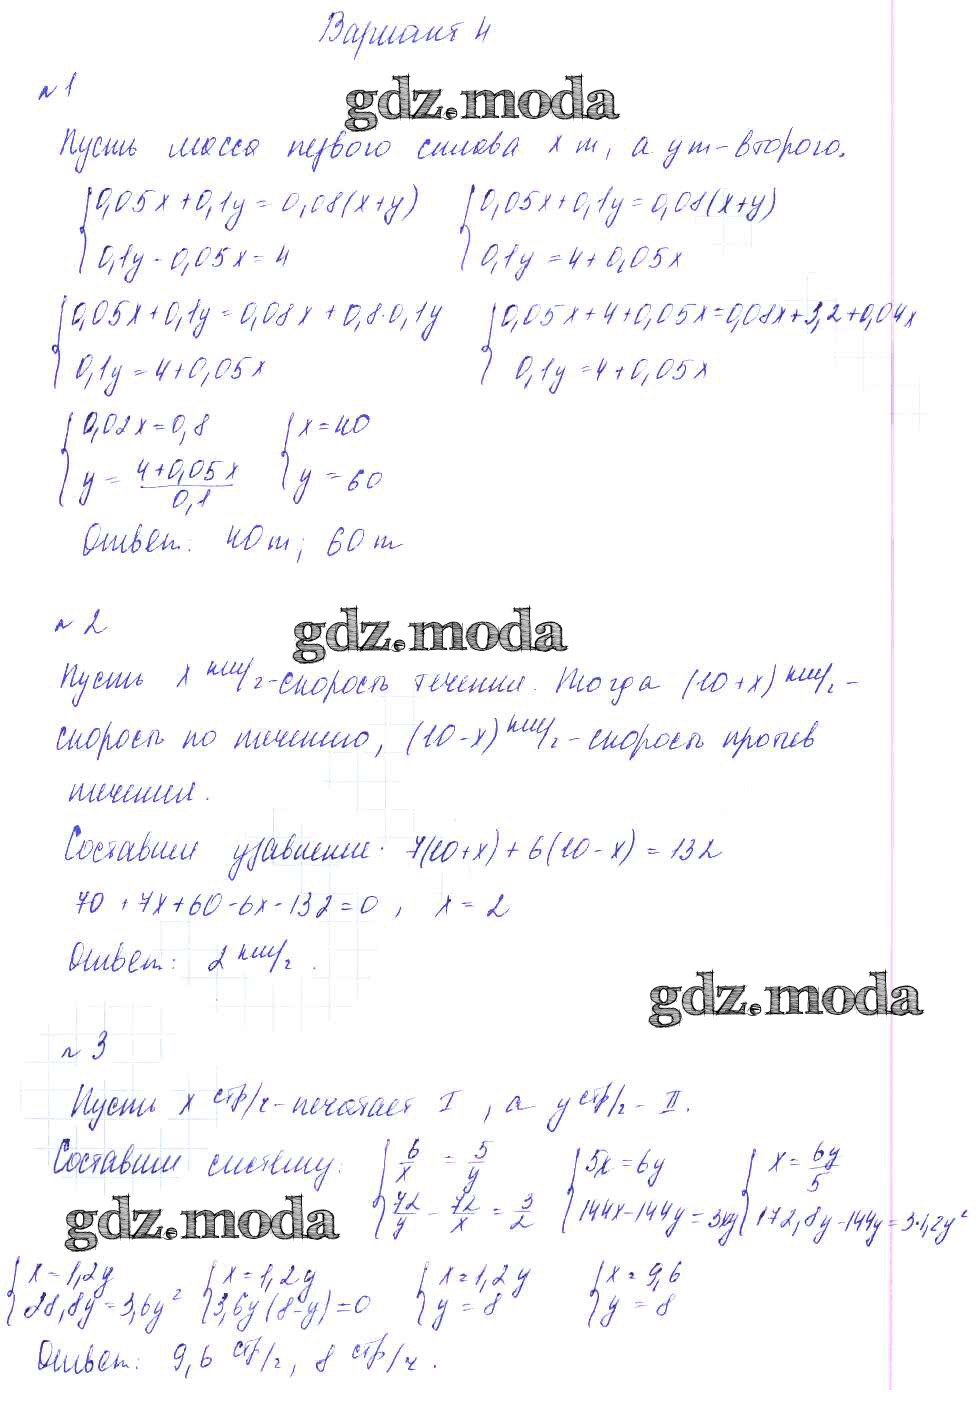 Вариант 4
№1
gdz.moda
Пусть масса первого сплава x т, а y т - второго.
{0,05x+0,1y=0,08(x+y) {0,05x+0,1y=0,08(x+y)
0,1y-0,05x=4 0,1y=4+0,05x
{0,05x+0,1y=0,08x+0,8·0,1y {0,05x+4+0,05x=0,08x+3,2+0,04x
0,1y=4+0,05x 0,1y=4+0,05x
{0,02x=0,8 {x=40
y=(4+0,05x)/0,1 y=60
Ответ: 40т; 60т
№2
gdz.moda
Пусть x км/ч - скорость течения. Тогда (10+x) км/ч -
скорость по течению, (10-x) км/ч - скорость против
течения.
Составим уравнение: 7(10+x)+6(10-x)=132
70+7x+60-6x-132=0, x=2
Ответ: 2 км/ч.
gdz.moda
№3
Пусть x стр/ч - печатает I, а y стр/ч - II.
Составим систему: {6/x = 5/y {5x=6y {x=6y/5
72/y - 72/x = 3/2 144x-144y=3xy 172,8y-144y=3·1,2y²
gdz.moda
{x=1,2y {x=1,2y {x=1,2y {x=9,6
28,8y=3,6y² 3,6y(8-y)=0 y=8 y=8
Ответ: 9,6 стр/ч, 8 стр/ч.